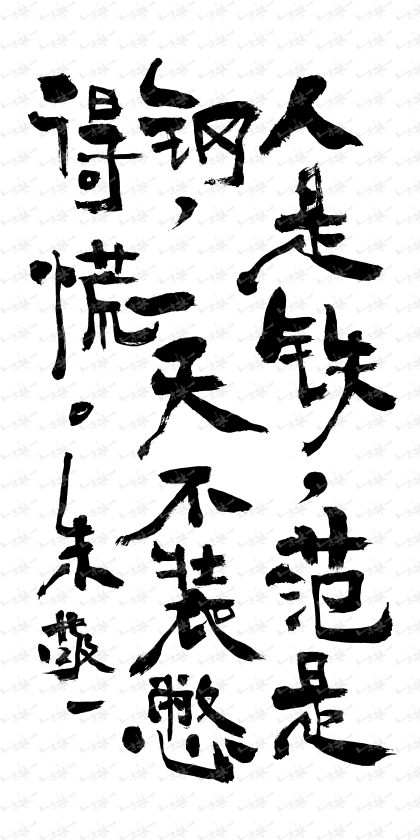 人是铁，范是
钢，一天不装憋
得慌。朱敬一